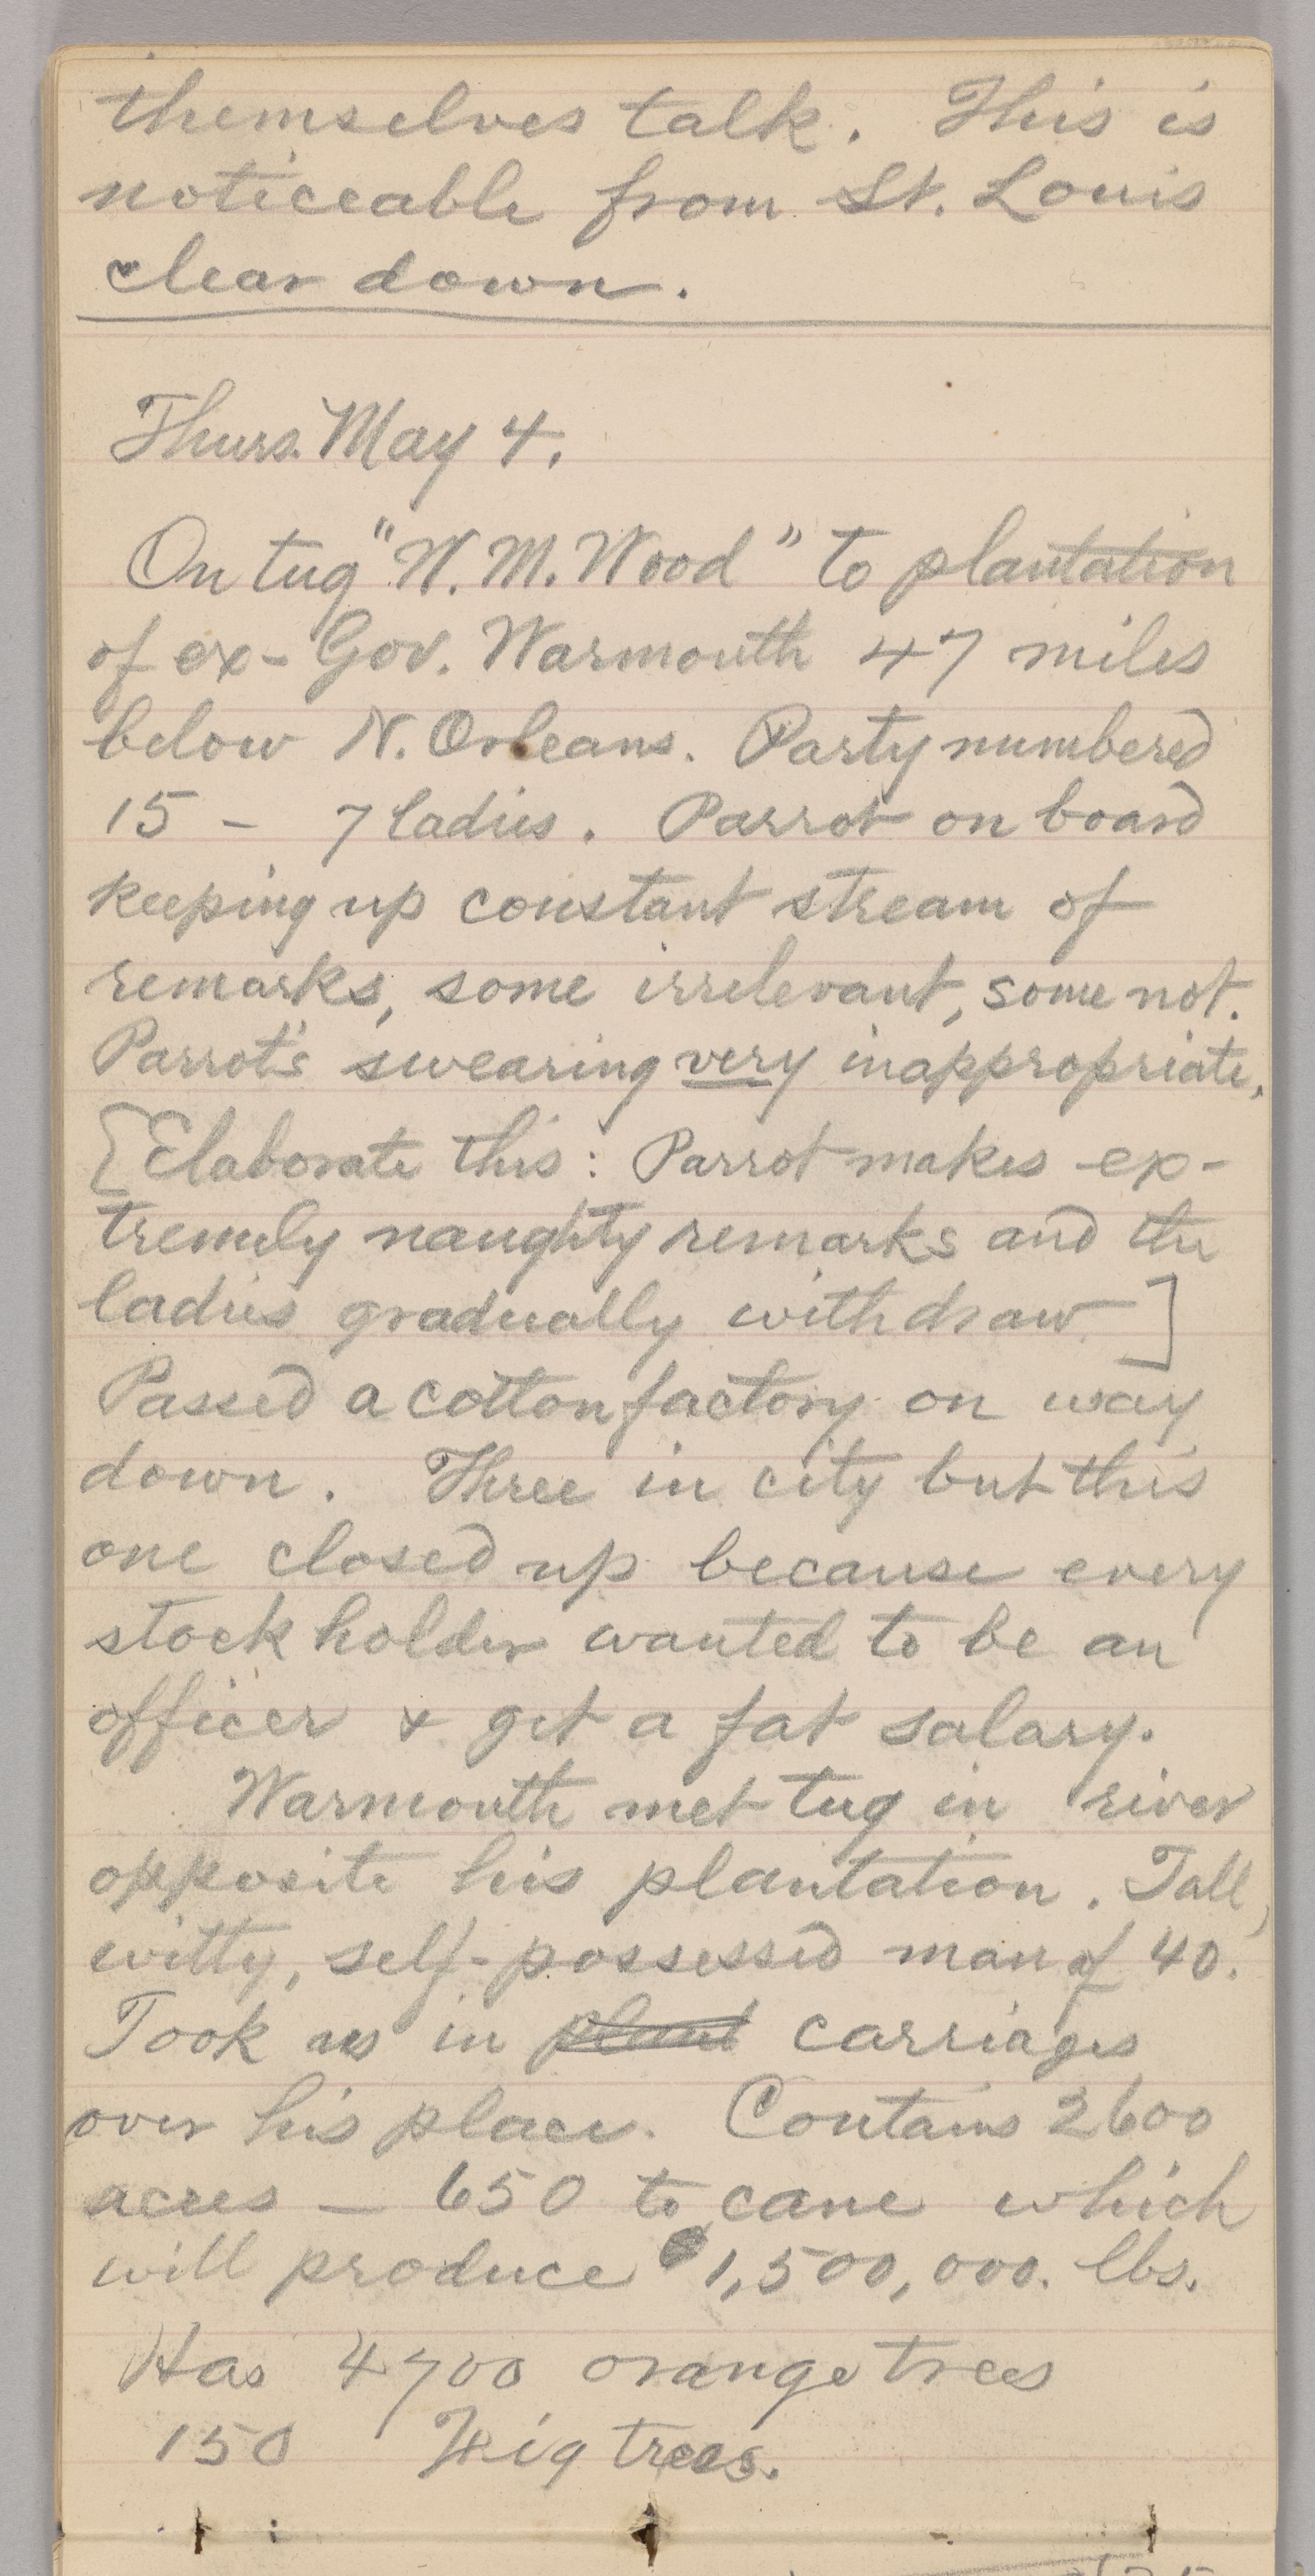 themselves talk. This is
noticeable from St. Louis
clear down.
Thurs. May 4.
On tug "W. M. Wood" to plantation
of ex-Gov. Warmouth 47 miles
below N. Orleans. Party numbered
15 - 7 ladies. Parrot on board
keeping up constant stream of
remarks, some irrelevant, some not.
Parrot's swearing very inappropriate.
[Elaborate this: Parrot makes ex-
tremely naughty remarks and the
ladies gradually withdraw]
Passed a cotton factory on way
down. Three in city but this
one closed up because every
stockholder wanted to be an
officer & get a fat salary.
Warmouth met tug in river
opposite his plantation. Tall,
witty, self-possessed man of 40.
Took us in plant carriages
over his place. Contains 2600
acres — 650 to cane which
will produce 1,500,000. lbs.
Has 4700 orange trees
150 Fig trees.